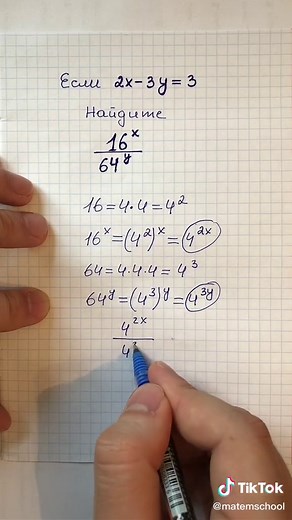 Если 2x-3y=3
Найдите
16^x
64^y
16=4·4=4²
16^x=(4²)^x=4^2x
64=4·4·4=4³
64^y=(4³)^y=4^3y
4^2x
4
TikTok
@matemschool